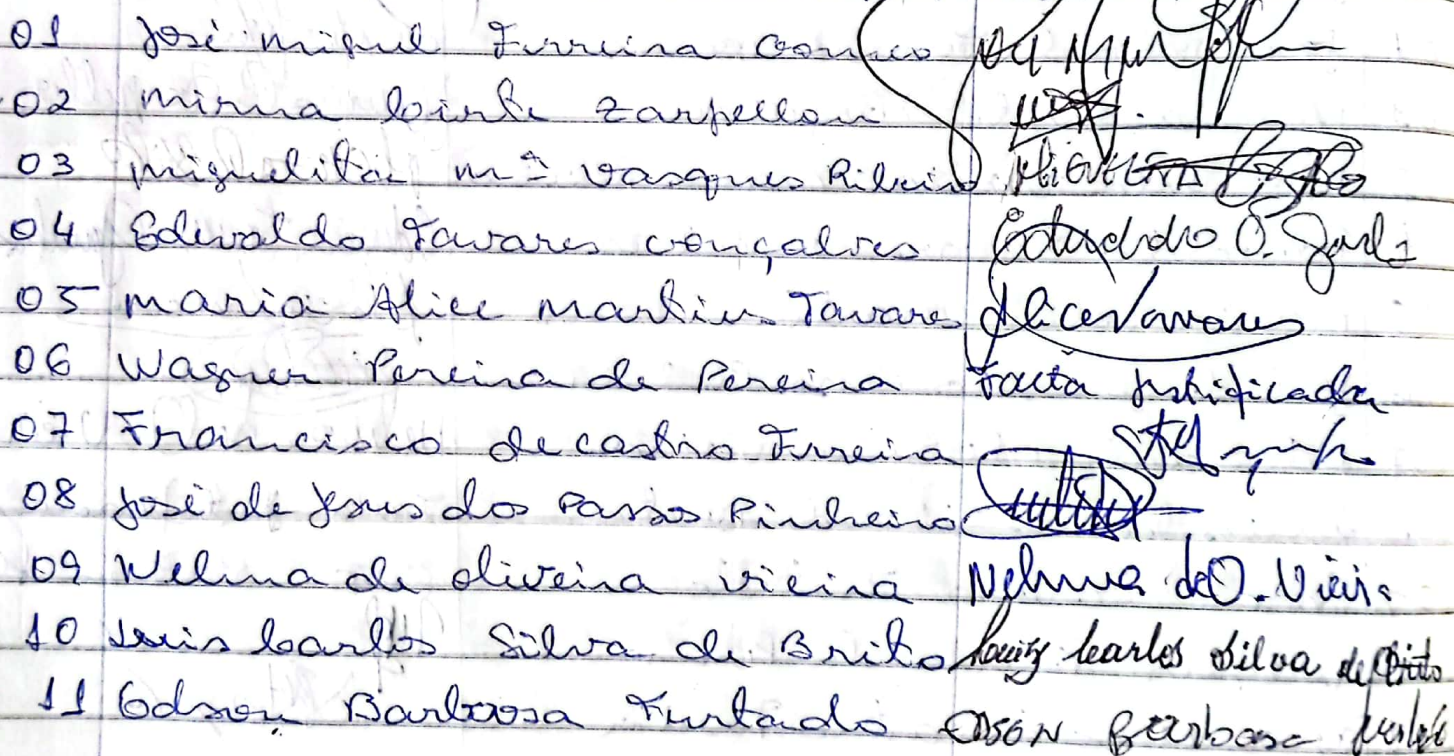 01 José Miguel Ferreira Correo
02 Mirna Cirte Zarpellon
03 Miguelita Mª Vasques Ribeiro Miguelita
04 Edevaldo Tavares Gonçalves
05 Maria Alice Martins Tavares Alice Tavares
06 Wagner Pereira de Pereira Falta Justificada
07 Francisco de castro Ferreira
08 José de Jesus dos Passos Pinheiro
09 Nelma de Oliveira Vieira Nelma de O. Vieira
10 Luis Carlos Silva de Brito Louis Carlos Silva de Brito
11 Edson Barbosa Furtado EDSON Barbosa